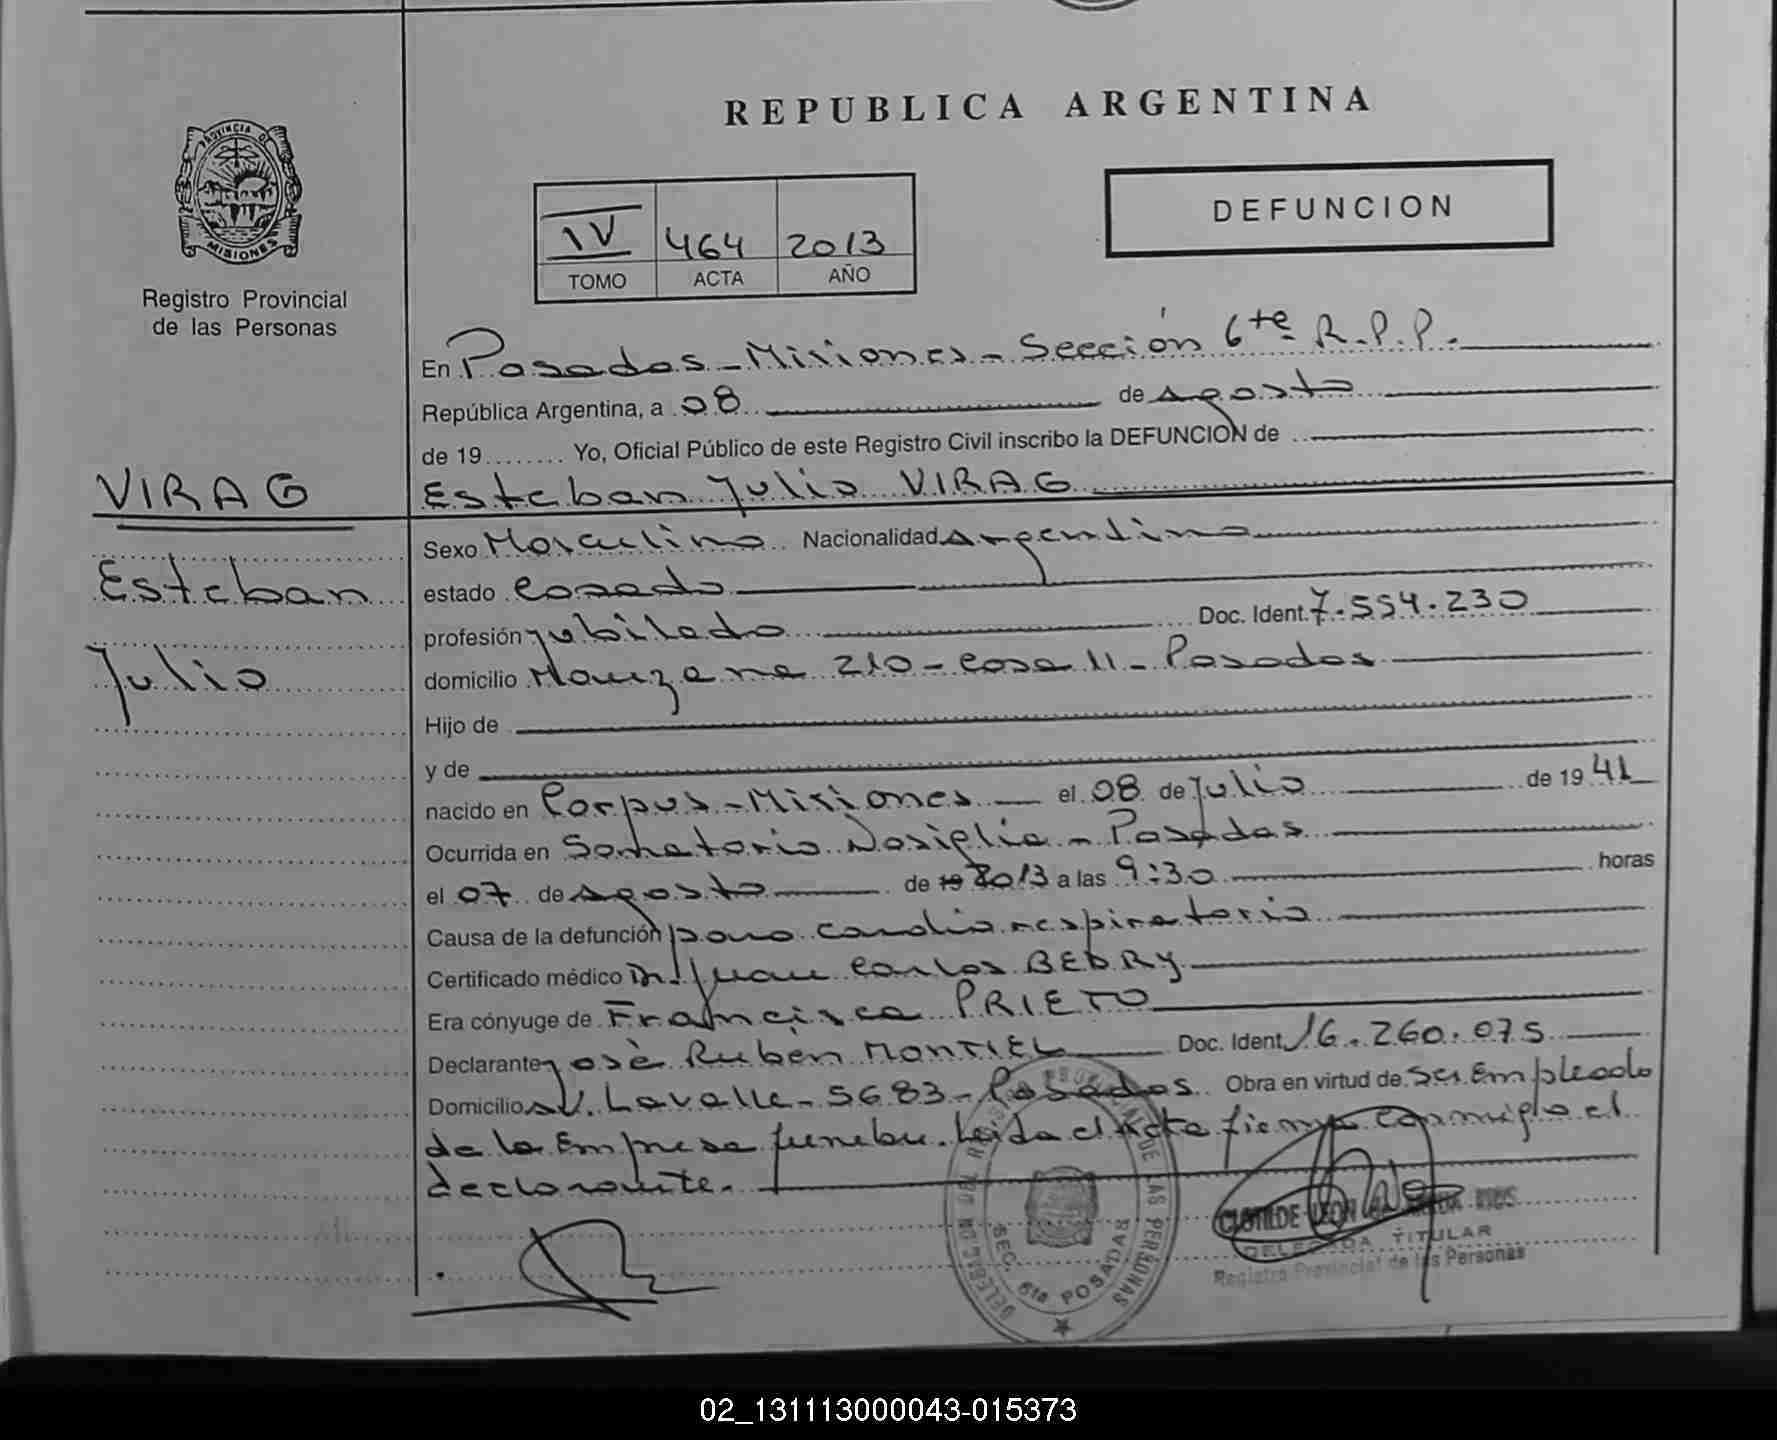 REPUBLICA ARGENTINA
PROVINCIA DE
MISIONES
Registro Provincial
de las Personas
DEFUNCION
IV 464 2013
TOMO ACTA AÑO
En Posadas - Misiones - Sección 6te R.P.P.
República Argentina, a 08 de agosto
de 19........ Yo, Oficial Público de este Registro Civil inscribo la DEFUNCION de
VIRAG
Esteban Julio VIRAG
Esteban
Julio
Sexo Masculino Nacionalidad Argentina
estado Casado
profesión jubilado Doc. Ident. 7.554.230
domicilio Manzana 210 - casa 11 - Posadas
Hijo de
y de
nacido en Corpus - Misiones el 08 de Julio de 19 41
Ocurrida en Sanatorio Nosiglia - Posadas
el 07 de agosto de 19 2013 a las 9:30 horas
Causa de la defunción paro cardio respiratorio
Certificado médico Dr. Juan Carlos BEDRY
Era cónyuge de Francisca PRIETO
Declarante José Rubén MONTIEL Doc. Ident. 16.260.075
Domicilio Av. Lavalle - 5683 - Posadas Obra en virtud de Ser Empleado
de la Empresa funebre. Leída el Acta firma conmigo el
declarante.
SEC. 6ta POSADAS
CLOTILDE LEON
DELEGADA TITULAR
Registro Provincial de las Personas
02_131113000043-015373